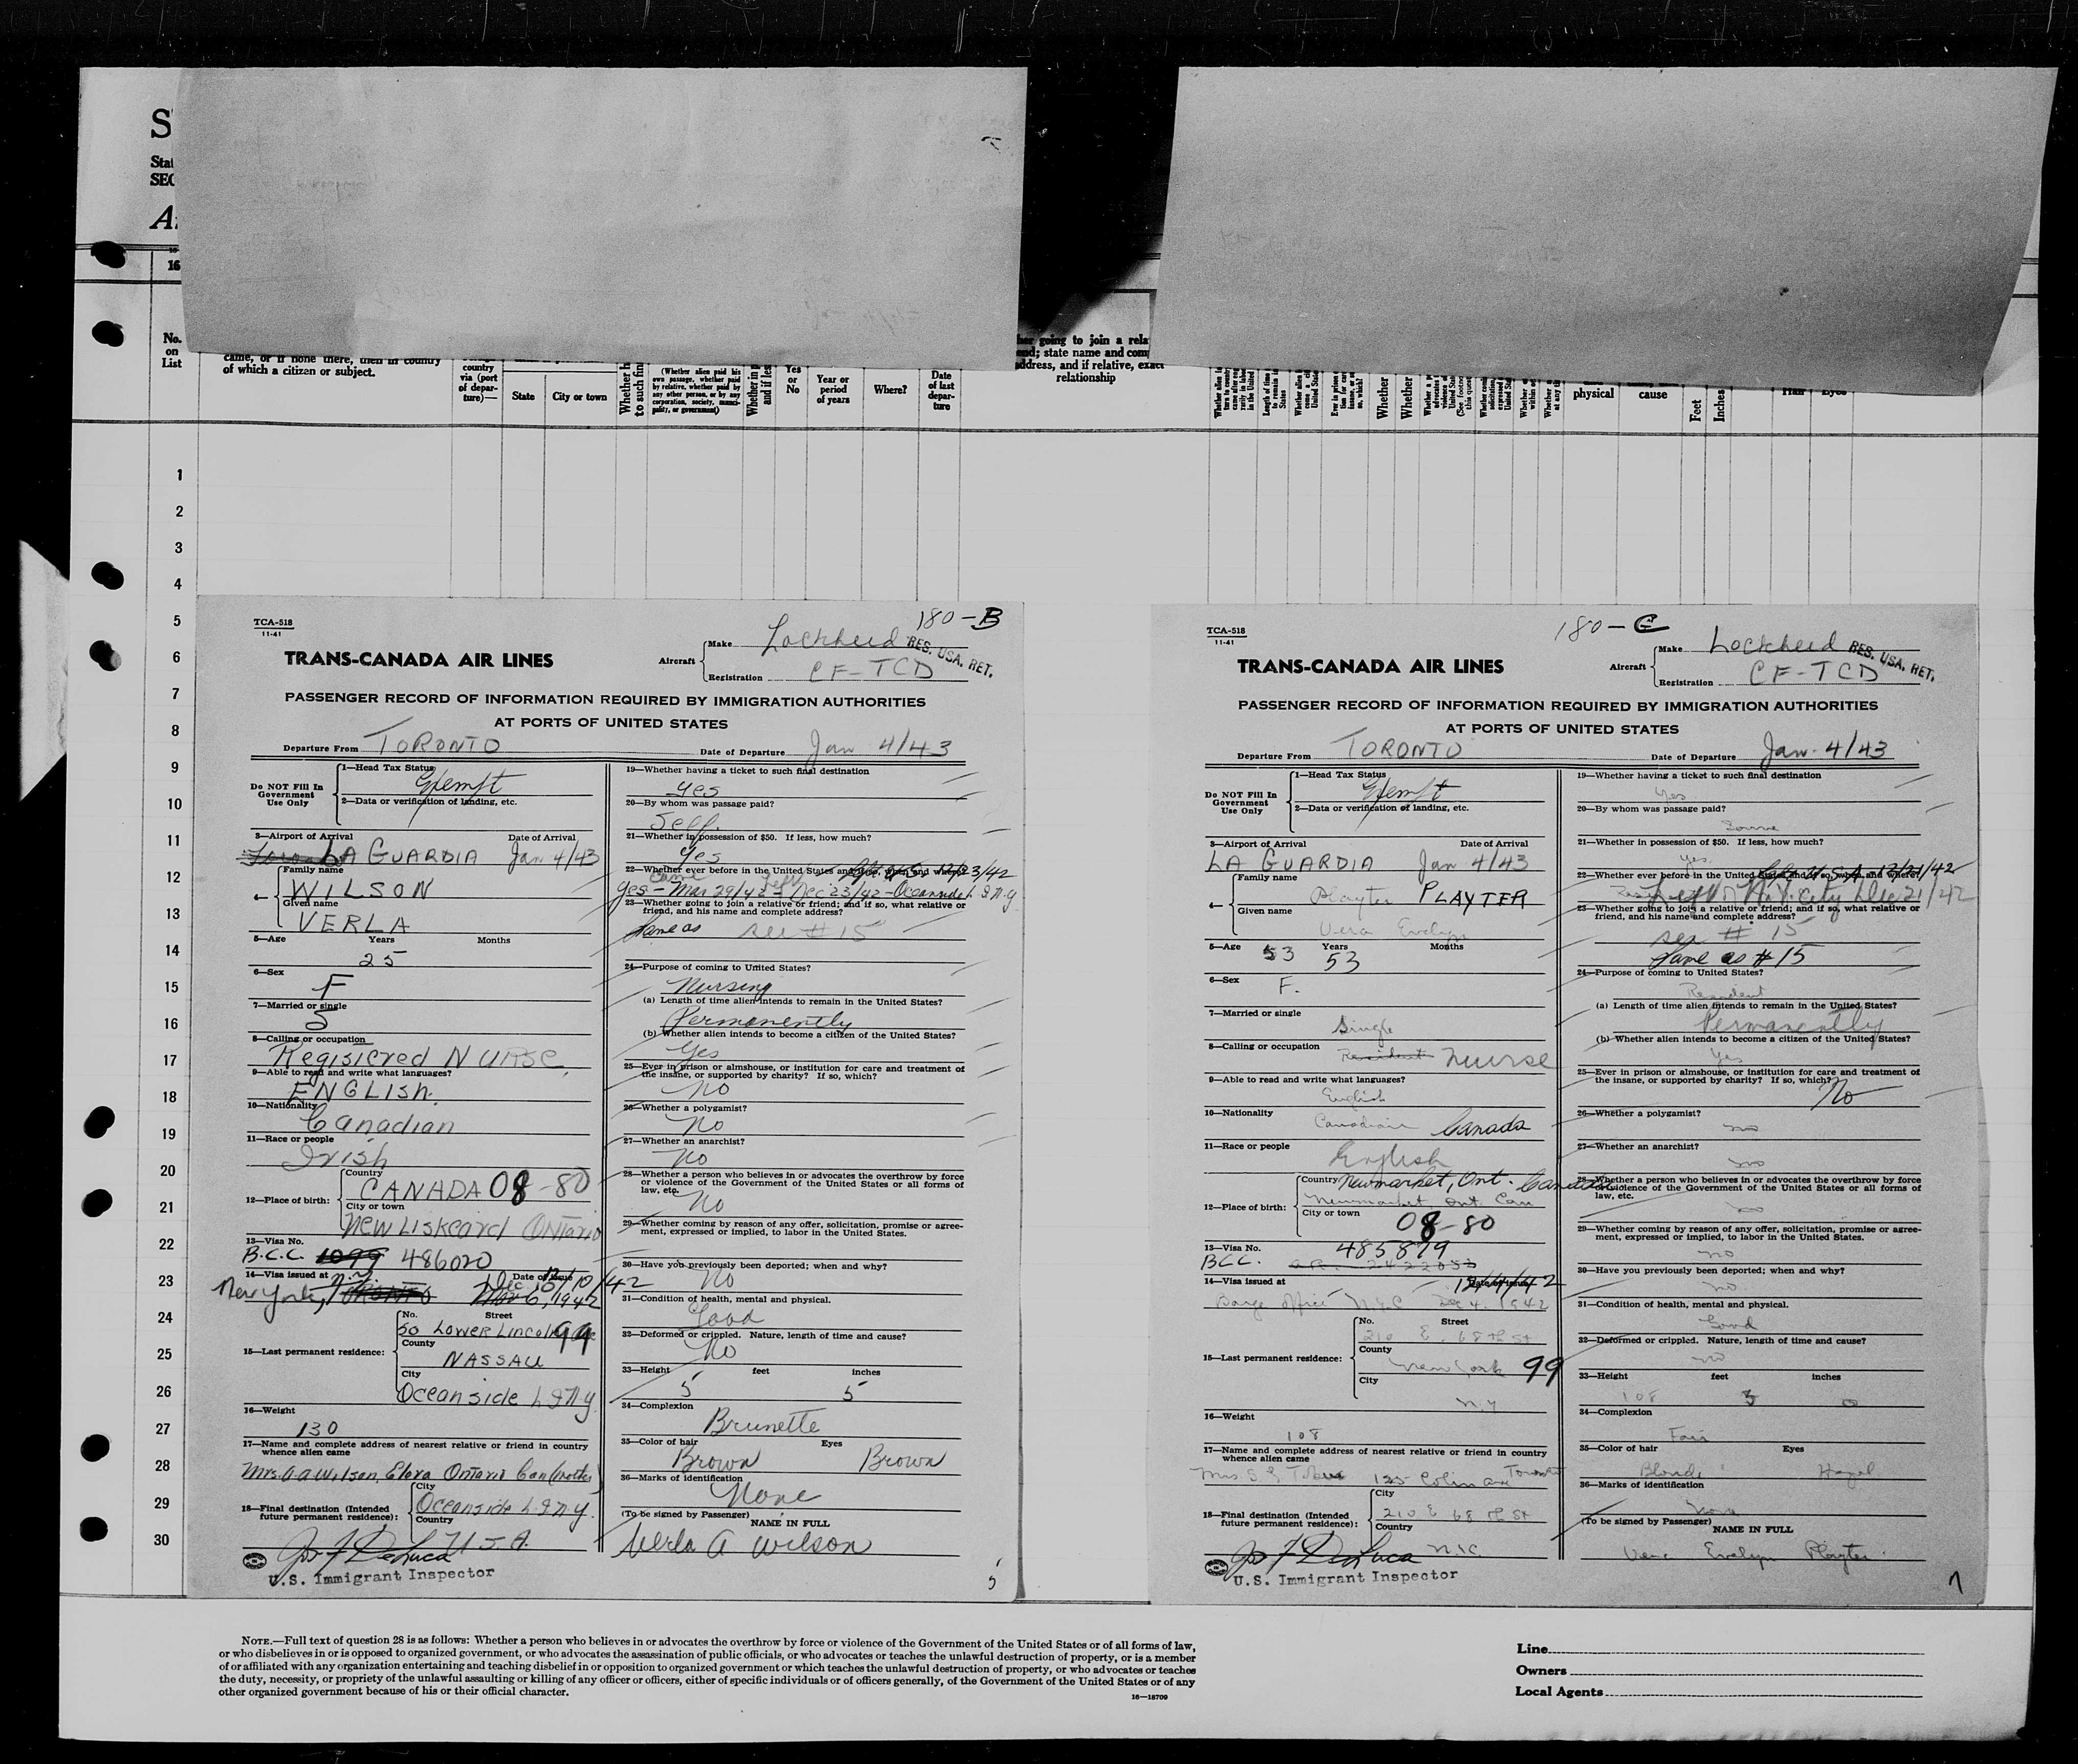 S
Stat
SEC
A
16
No.
on
List
came, or if none there, then in country
of which a citizen or subject.
country
via (port
of depar-
ture)—
State
City or town
(Whether alien paid his
own passage, whether paid
by relative, whether paid by
any other person, or by any
corporation, society, munici-
pality, or government)
Yes
or
No
Year or
period
of years
Where?
Date
of last
depar-
ture
going to join a rela
state name and com
address, and if relative, exact
relationship
physical
cause
Feet
Inches
Hair
Eyes
1
2
3
4
5
6
7
8
9
10
11
12
13
14
15
16
17
18
19
20
21
22
23
24
25
26
27
28
29
30
180-B
TCA-518
11-41
TRANS-CANADA AIR LINES
Aircraft
Make Lockheed
Registration CF-TCD
RES. USA. RET.
PASSENGER RECORD OF INFORMATION REQUIRED BY IMMIGRATION AUTHORITIES
AT PORTS OF UNITED STATES
Departure From TORONTO Date of Departure Jan 4/43
Do NOT Fill In
Government
Use Only
1—Head Tax Status
Exempt
2—Data or verification of landing, etc.
3—Airport of Arrival Date of Arrival
LA GUARDIA Jan 4/43
4— Family name
WILSON
Given name
VERLA
5—Age Years Months
25
6—Sex
F
7—Married or single
S
8—Calling or occupation
Registered NURSE
9—Able to read and write what languages?
ENGLISH.
10—Nationality
Canadian
11—Race or people
Irish
12—Place of birth: Country
CANADA 08-80
City or town
New Liskeard Ontario
13—Visa No.
B.C.C. 1099 486020
14—Visa issued at Date of Issue
New York, N.Y. TORONTO Dec 10/42
15—Last permanent residence: No. Street
50 Lower Lincoln 99
County
NASSAU
City
Oceanside L I N.Y.
16—Weight
130
17—Name and complete address of nearest relative or friend in country
whence alien came
Mrs. A.A Wilson, Elora Ontario Can (mother)
18—Final destination (Intended
future permanent residence): City
Oceanside L.I N.Y.
Country
U.S.A.
Jos F DeLuca
U.S. Immigrant Inspector
19—Whether having a ticket to such final destination
Yes
20—By whom was passage paid?
Self.
21—Whether in possession of $50. If less, how much?
Yes
22—Whether ever before in the United States and if so, when and where? 12/23/42
Yes - Mar 29/42 - Dec 23/42 - Oceanside L I N.Y
23—Whether going to join a relative or friend; and if so, what relative or
friend, and his name and complete address?
Same as see # 15
24—Purpose of coming to United States?
Nursing
(a) Length of time alien intends to remain in the United States?
Permanently
(b) Whether alien intends to become a citizen of the United States?
Yes
25—Ever in prison or almshouse, or institution for care and treatment of
the insane, or supported by charity? If so, which?
No
26—Whether a polygamist?
No
27—Whether an anarchist?
No
28—Whether a person who believes in or advocates the overthrow by force
or violence of the Government of the United States or all forms of
law, etc.
No
29—Whether coming by reason of any offer, solicitation, promise or agree-
ment, expressed or implied, to labor in the United States.
30—Have you previously been deported; when and why?
No
31—Condition of health, mental and physical.
Good
32—Deformed or crippled. Nature, length of time and cause?
No
33—Height feet inches
5 5
34—Complexion
Brunette
35—Color of hair Eyes
Brown Brown
36—Marks of identification
None
(To be signed by Passenger) NAME IN FULL
Verla A Wilson
5
180-C
TCA-518
11-41
TRANS-CANADA AIR LINES
Aircraft
Make Lockheed
Registration CF-TCD
RES. USA. RET.
PASSENGER RECORD OF INFORMATION REQUIRED BY IMMIGRATION AUTHORITIES
AT PORTS OF UNITED STATES
Departure From TORONTO Date of Departure Jan. 4/43
Do NOT Fill In
Government
Use Only
1—Head Tax Status
Exempt
2—Data or verification of landing, etc.
3—Airport of Arrival Date of Arrival
LA GUARDIA Jan 4/43
4— Family name
Playter PLAYTER
Given name
Vera Evelyn
5—Age Years Months
53 53
6—Sex
F.
7—Married or single
Single
8—Calling or occupation
Resident Nurse
9—Able to read and write what languages?
English
10—Nationality
Canadian Canada
11—Race or people
English
12—Place of birth: Country
Newmarket, Ont. Canada
Newmarket Ont. Can
City or town
08-80
13—Visa No.
485879
BCC.
14—Visa issued at Date of Issue
12/4/42
Barge Office N.Y.C Dec 4. 1942
15—Last permanent residence: No. Street
210 E. 68th St
County
New York 99
City
N.Y
16—Weight
108
17—Name and complete address of nearest relative or friend in country
whence alien came
Mrs. S. G. 125 Colin Ave Toronto
18—Final destination (Intended
future permanent residence): City
210 E 68th St
Country
N.Y.C.
Jos F DeLuca
U.S. Immigrant Inspector
19—Whether having a ticket to such final destination
Yes
20—By whom was passage paid?
21—Whether in possession of $50. If less, how much?
yes
22—Whether ever before in the United States and if so, when and where? 12/21/42
Left N.Y. City Dec 21/42
23—Whether going to join a relative or friend; and if so, what relative or
friend, and his name and complete address?
see # 15
Same as # 15
24—Purpose of coming to United States?
Resident
(a) Length of time alien intends to remain in the United States?
Permanently
(b) Whether alien intends to become a citizen of the United States?
Yes
25—Ever in prison or almshouse, or institution for care and treatment of
the insane, or supported by charity? If so, which?
No
26—Whether a polygamist?
no
27—Whether an anarchist?
no
28—Whether a person who believes in or advocates the overthrow by force
or violence of the Government of the United States or all forms of
law, etc.
no
29—Whether coming by reason of any offer, solicitation, promise or agree-
ment, expressed or implied, to labor in the United States.
no
30—Have you previously been deported; when and why?
no
31—Condition of health, mental and physical.
Good
32—Deformed or crippled. Nature, length of time and cause?
no
33—Height feet inches
108 5 0
34—Complexion
Fair
35—Color of hair Eyes
Blonde Hazel
36—Marks of identification
None
(To be signed by Passenger) NAME IN FULL
Vera Evelyn Playter
7
NOTE.—Full text of question 28 is as follows: Whether a person who believes in or advocates the overthrow by force or violence of the Government of the United States or of all forms of law,
or who disbelieves in or is opposed to organized government, or who advocates the assassination of public officials, or who advocates or teaches the unlawful destruction of property, or is a member
of or affiliated with any organization entertaining and teaching disbelief in or opposition to organized government or which teaches the unlawful destruction of property, or who advocates or teaches
the duty, necessity, or propriety of the unlawful assaulting or killing of any officer or officers, either of specific individuals or of officers generally, of the Government of the United States or of any
other organized government because of his or their official character.
16—18709
Line
Owners
Local Agents